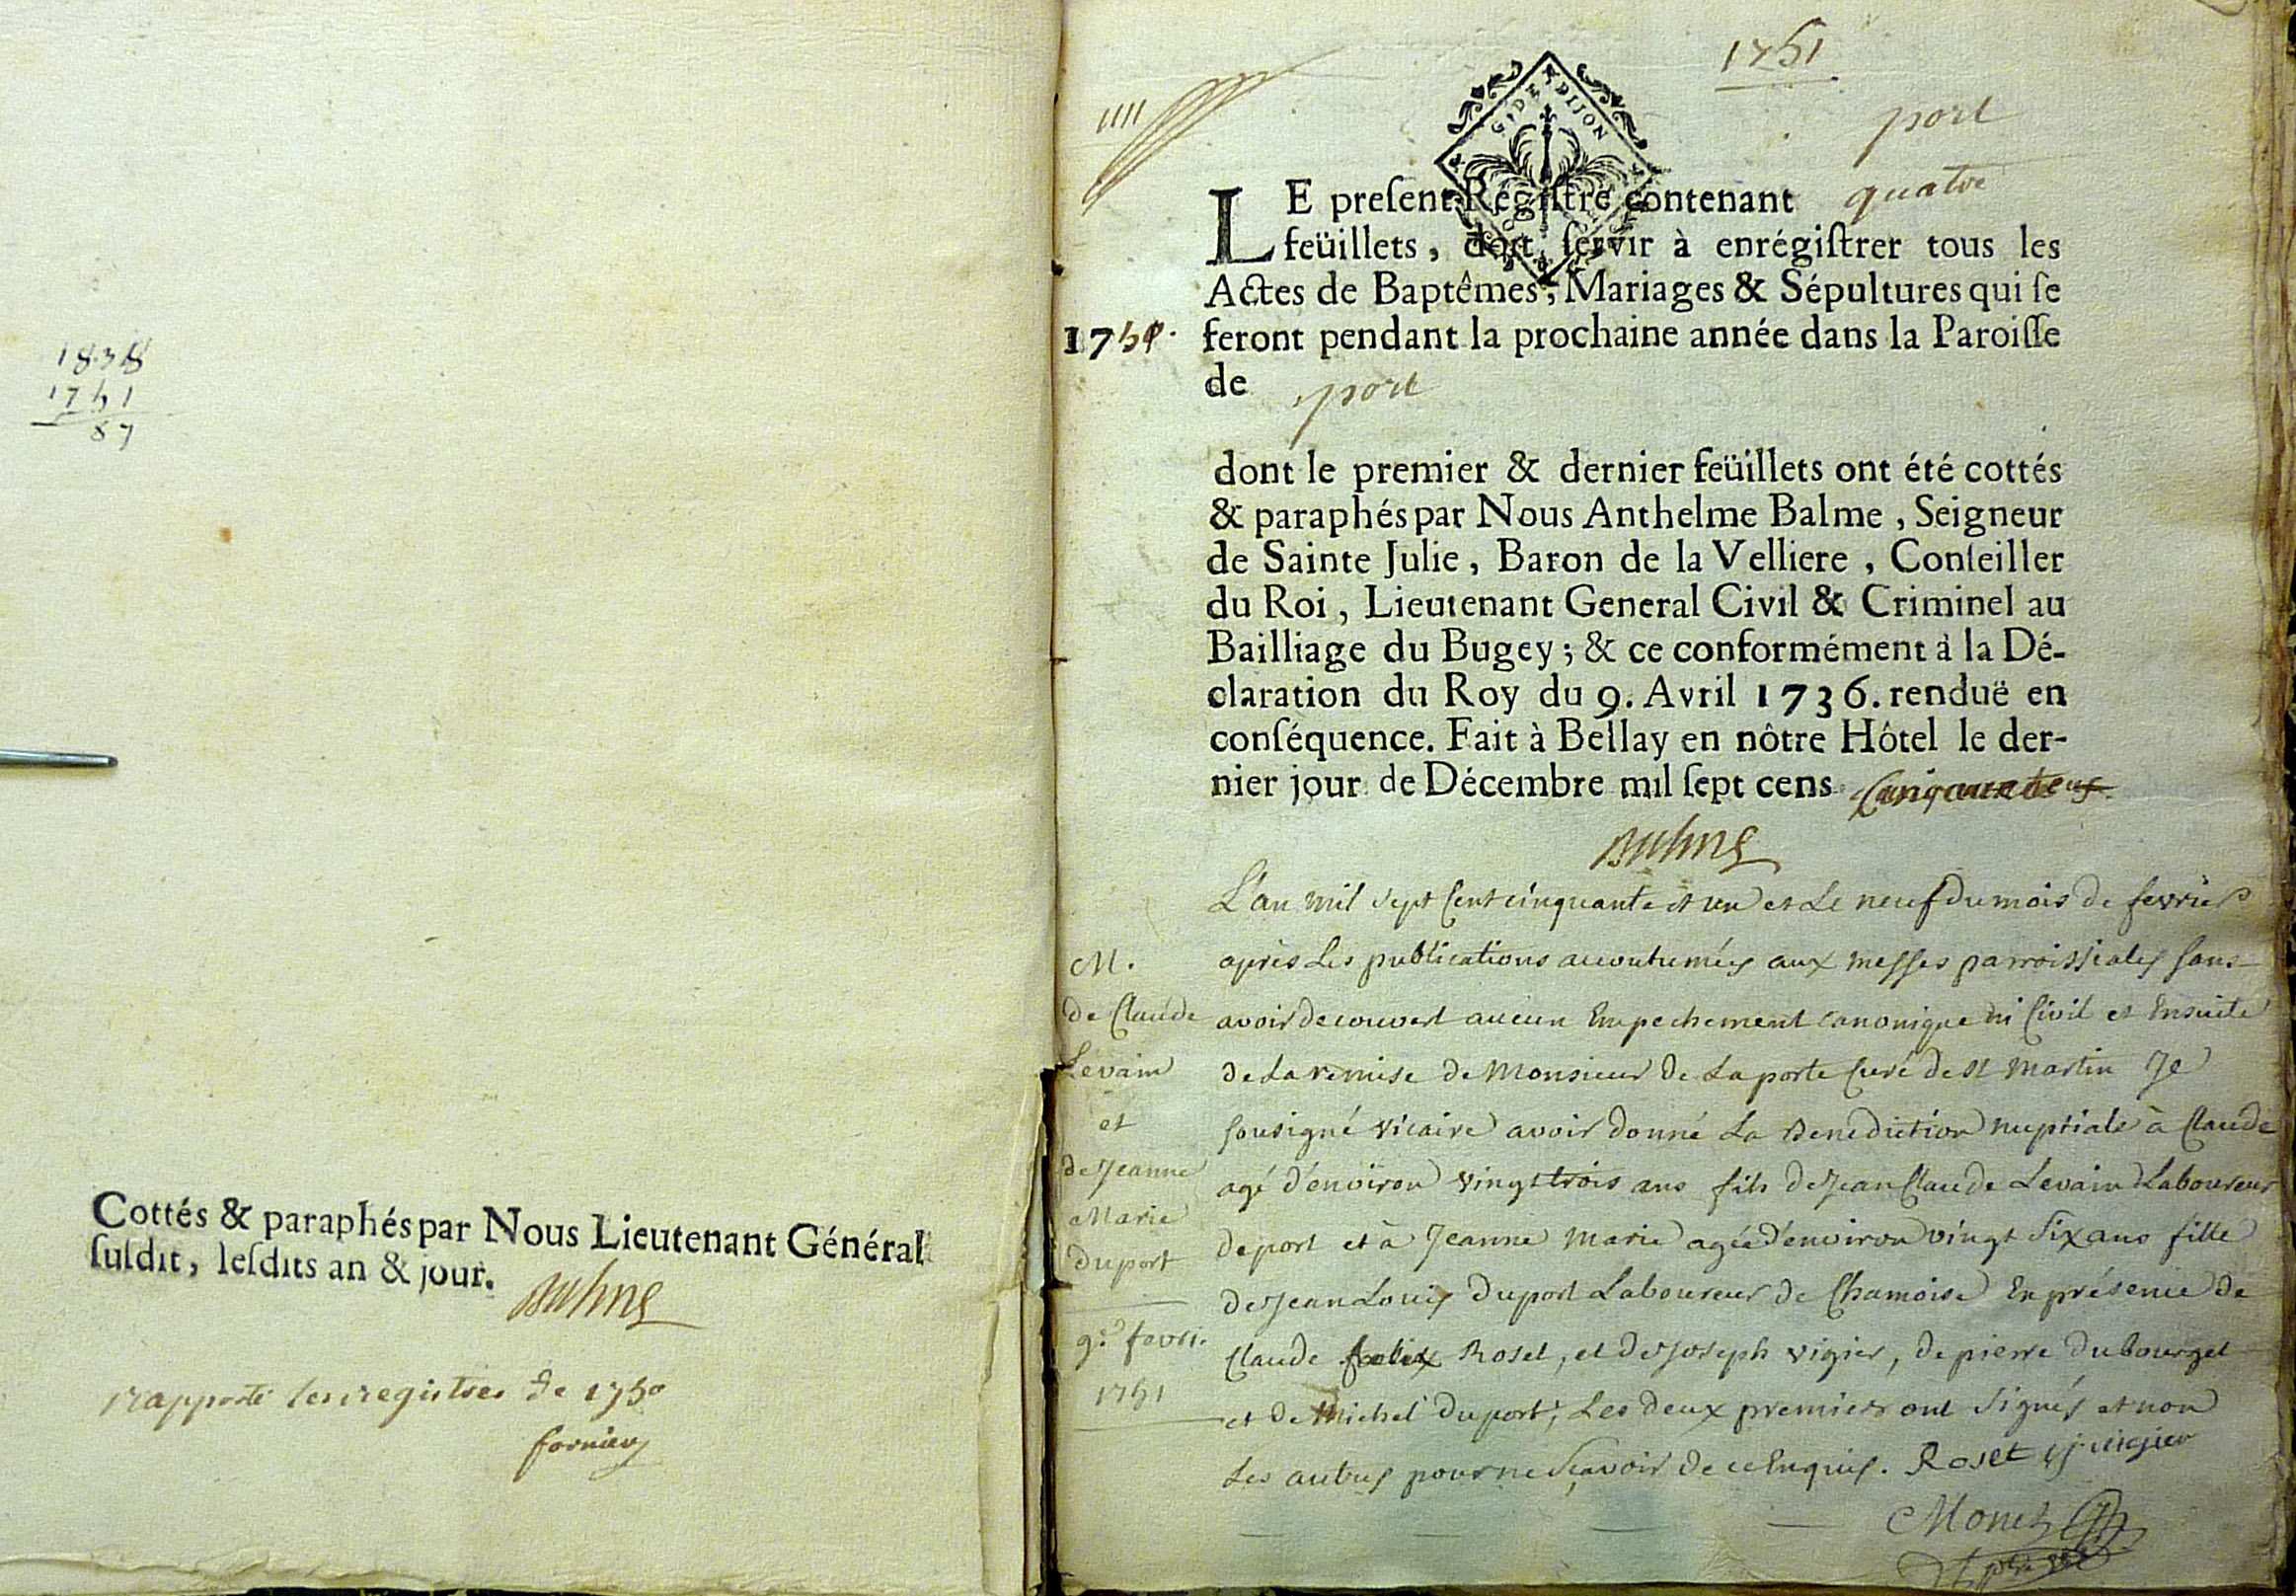 1838
1751
87
Cottés & paraphés par Nous Lieutenant Général
ſuſdit, leſdits an & jour.
Balme
rapporté les registres de 1750
1751
port
G. DE DIJON
LE preſent Régiſtre contenant quatre
feüillets, doit ſervir à enrégiſtrer tous les
Actes de Baptêmes, Mariages & Sépultures qui ſe
1751. feront pendant la prochaine année dans la Paroiſſe
de port
dont le premier & dernier feüillets ont été cottés
& paraphés par Nous Anthelme Balme, Seigneur
de Sainte Julie, Baron de la Velliere, Conſeiller
du Roi, Lieutenant General Civil & Criminel au
Bailliage du Bugey; & ce conformément à la Dé-
claration du Roy du 9. Avril 1736. renduë en
conſéquence. Fait à Bellay en nôtre Hôtel le der-
nier jour de Décembre mil ſept cens
Balme
L'an mil sept Cent cinquante et un et Le neuf du mois de fevrier
après Les publications accoutumées aux messes parroissiales sans
avoir decouvert aucun Empechement canonique ni Civil et Ensuite
de La remise de Monsieur de Laporte Curé de St Martin Je
sousigné vicaire avoir donné La Benediction nuptiale à Claude
agé d'environ vingt trois ans fils de Jean Claude Levain Laboureur
de port et à Jeanne Marie agée d'environ vingt six ans fille
de Jean Louis Duport Laboureur de Chamoise En présence de
Claude felix Roset, et de Joseph vigier, de pierre Dubourget
et de Michel Duport, Les deux premiers ont signés et non
Les autres pour ne sçavoir de ce Enquis. Roset j vigier
Monet
M.
de Claude
Levain
et
de Jeanne
Marie
Duport
9e fevri.
1751